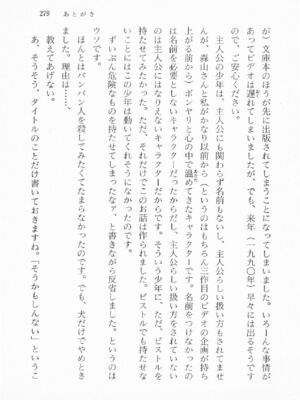 279 あとがき
が、文庫本のほうが先に出版されてしまうことになってしまいました。いろーんな事情が
あってビデオは遅れてしまいましたが、でも、来年（一九九〇年）早々には出るそうです
ので、ご安心ください。
主人公の少年は、主人公にも関わらず名前もないし、主人公らしい扱い方もされてませ
んが、森山さんと私がかなり以前から（というのはもちろん三作目のビデオの企画が持ち
上がる前から）ボンヤリと心の中で温めてきたキャラクターです。名前をつけなかったの
は名前を必要としないキャラクターだったからだし、主人公らしい扱い方をされていない
のは主人公にはなりえないキャラクターだからです。そういう少年に、ただ、ピストルを
持たせてみたかった。ただ、それだけでこのお話は作られました。ピストルでも持たせな
いことにはこの少年は動いてくれそうになかったのです。
ずいぶん危険なものを持たせてしまったなァ、と書きながら反省しました。というのは
ウソです。
ほんとはバンバン人を殺してみたくてたまらなかったのです。でも、犬だけでやめとき
ました。理由は……。
教えてあげない。
あ、そうそう、タイトルのことだけ書いておきますね。「そうかもしんない」というこ